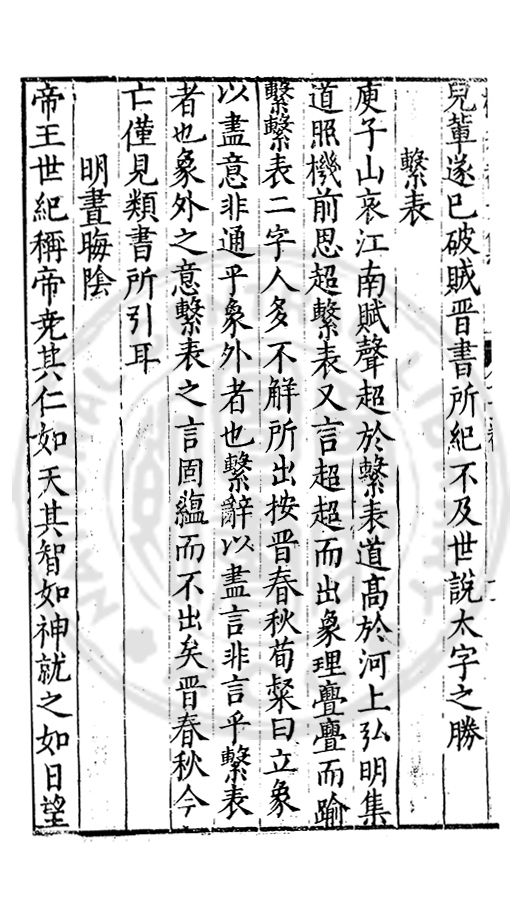 兒輩遂已破賊晉書所紀不及世說太字之勝
繫表
庾子山哀江南賦聲超於繫表道高於河上弘明集
道照機前思超繫表又言超超而出象理亹亹而踰
繫繫表二字人多不解所出按晉春秋荀粲曰立象
以盡意非通乎象外者也繫辭以盡言非言乎繫表
者也象外之意繫表之言固蘊而不出矣晉春秋今
亡僅見類書所引耳
明晝晦陰
帝王世紀稱帝堯其仁如天其智如神就之如日望